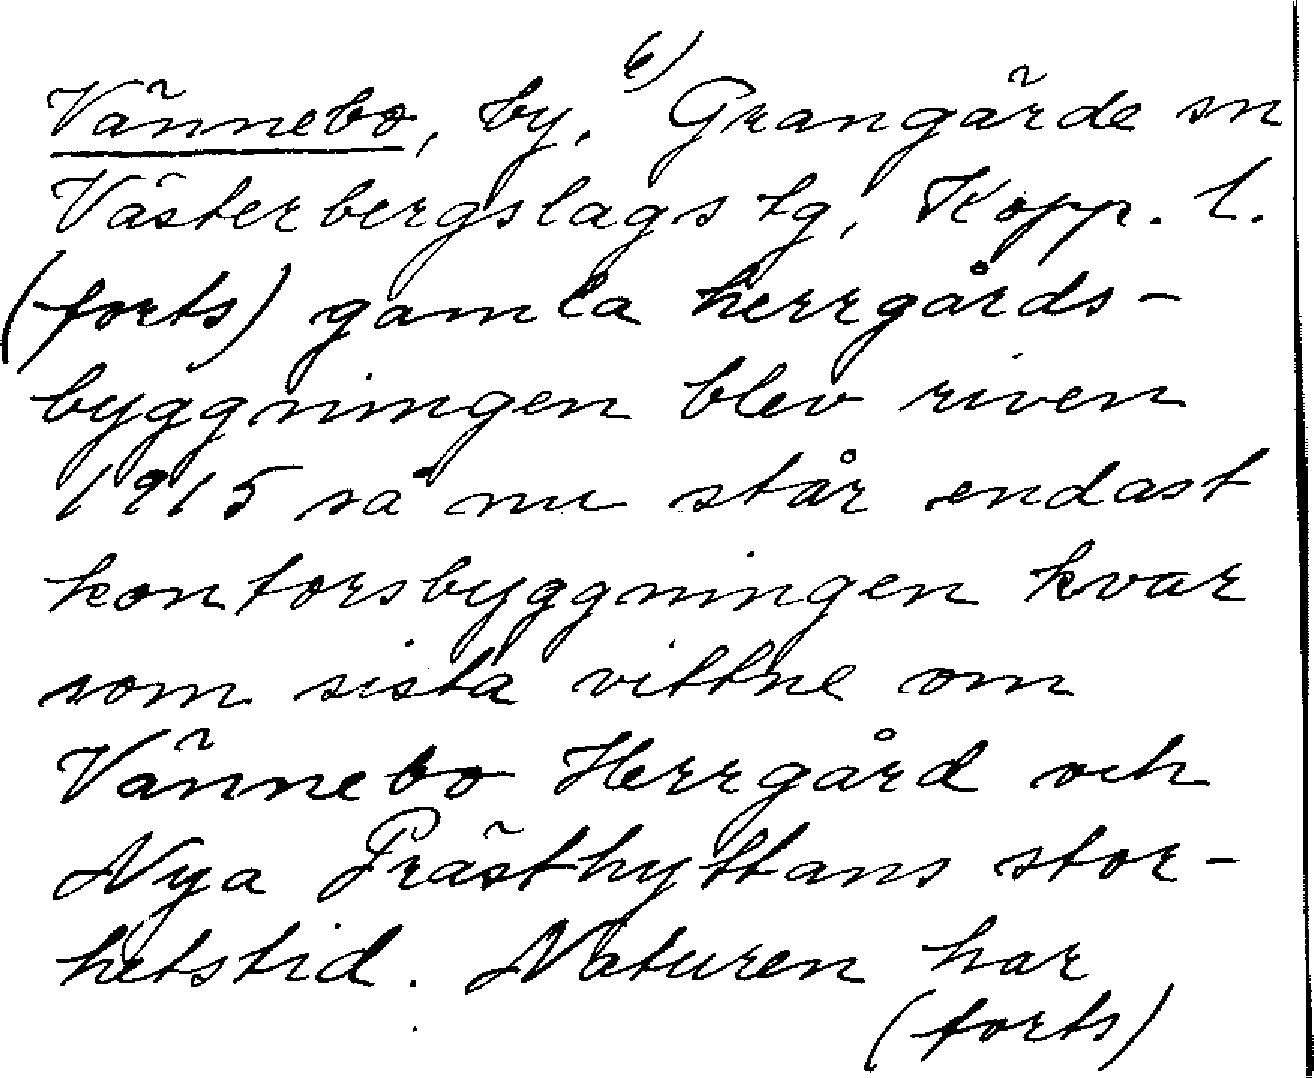 6)
Vännebo, by, Grangärde sn
Västerbergslags tg, Kopp. l.
(forts) gamla herrgårds-
byggningen blev riven
1915 så nu står endast
kontorsbyggningen kvar
som sista vittne om
Vännebo Herrgård och
Nya Prästhyttans stor-
hetstid. Naturen har
(forts)